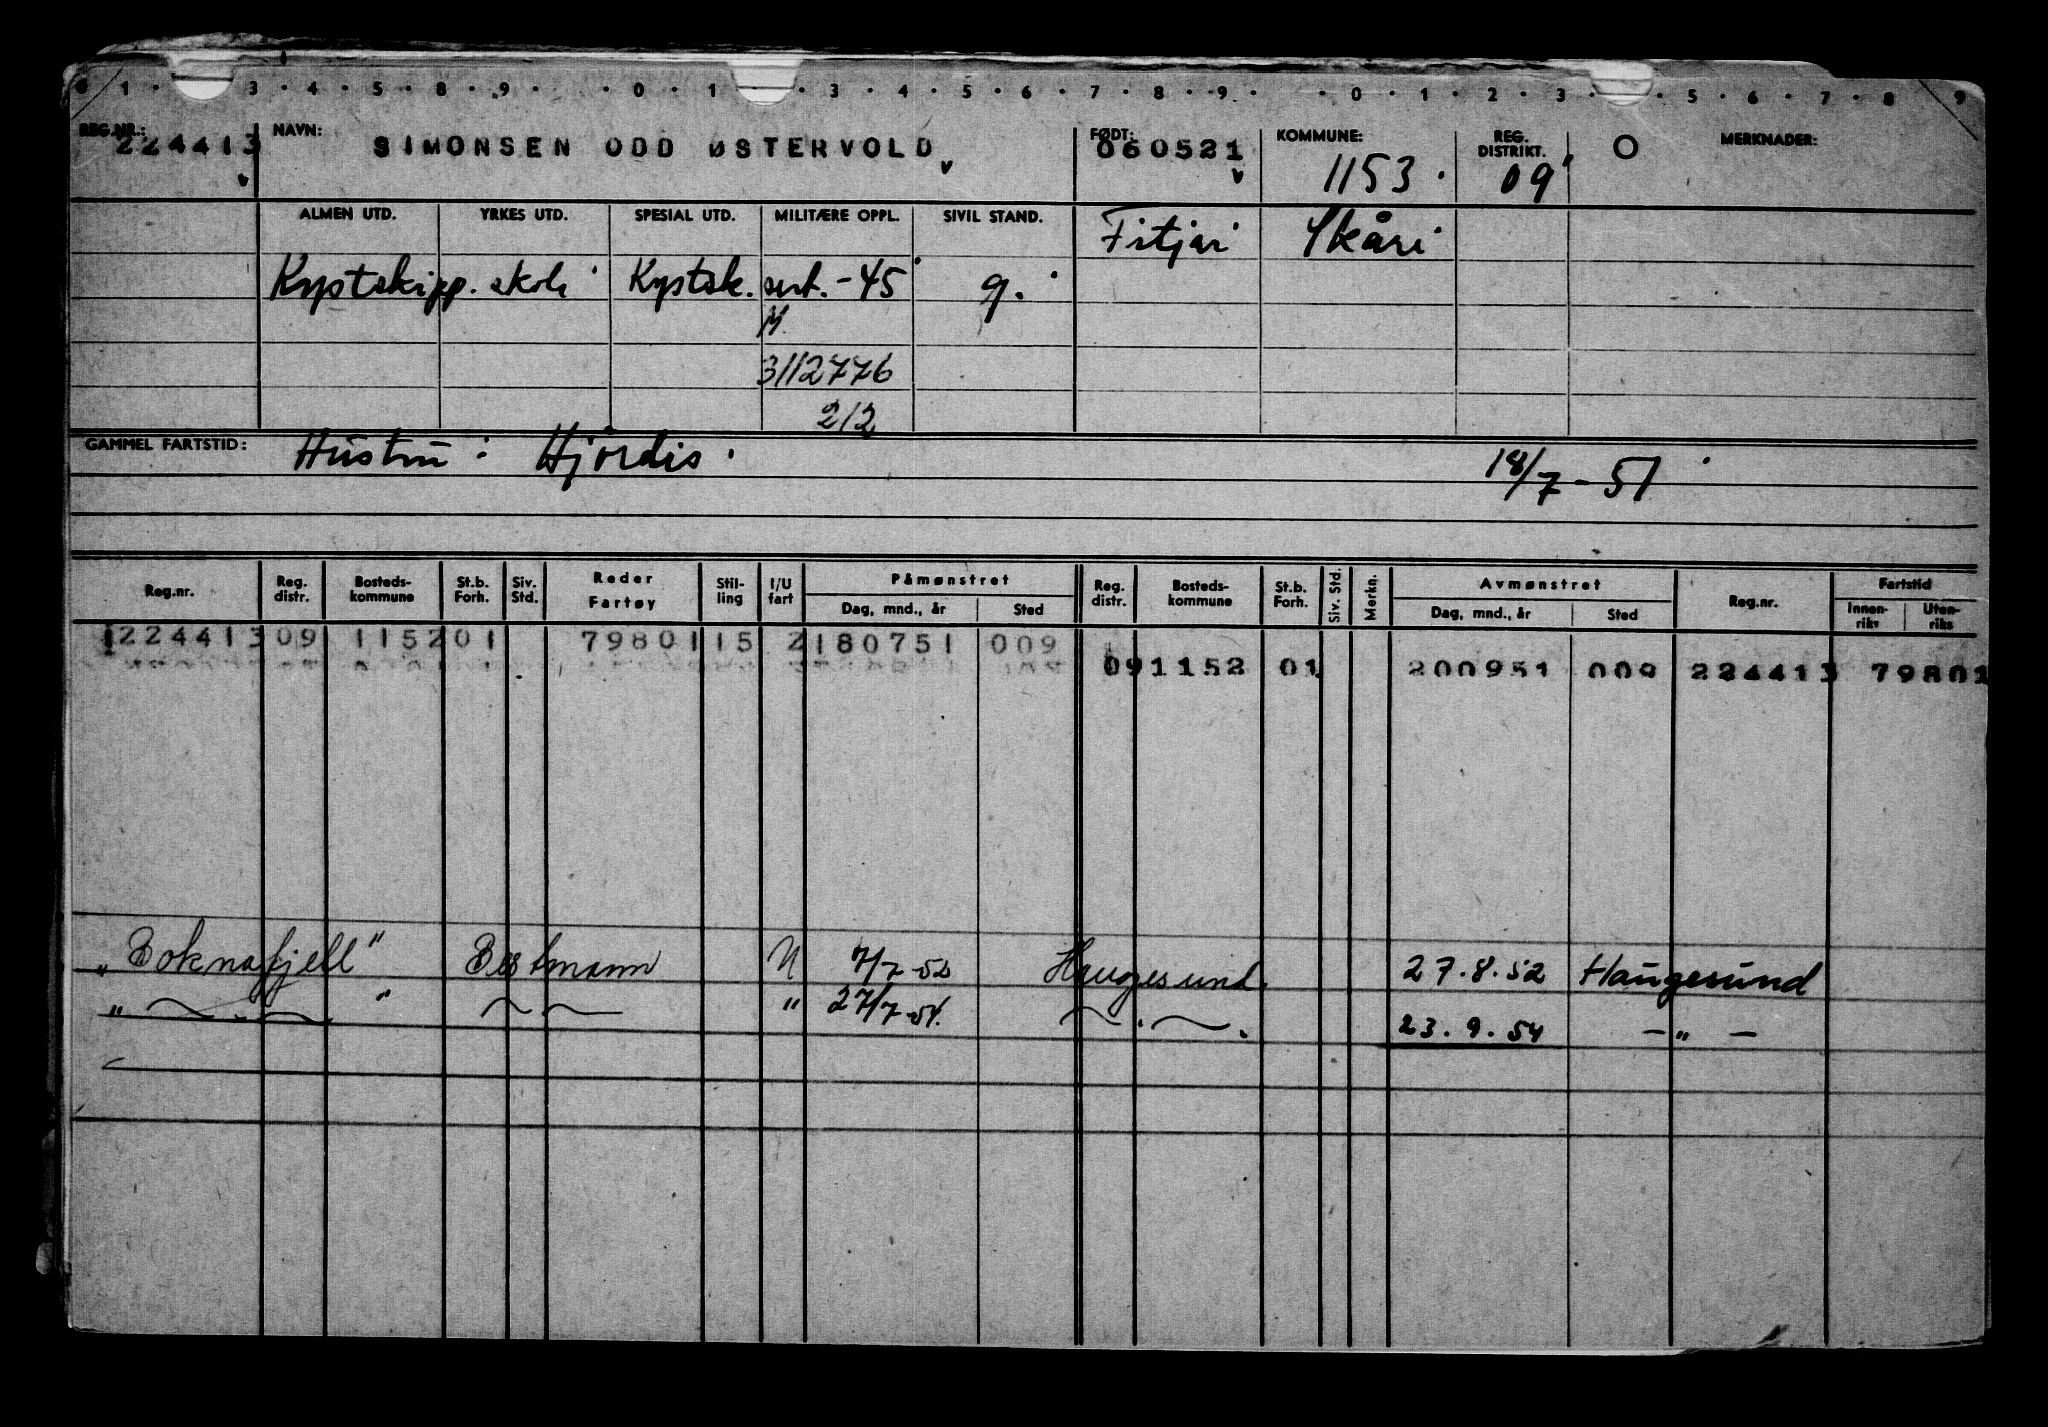 0 1 · 3 · 4 · 5 · 8 · 9 · · 0 · 1 · 3 · 4 · 5 · 6 · 7 · 8 · 9 · · 0 · 1 · 2 · 3 · 5 · 6 · 7 · 8 9
REG.NR.: NAVN: FØDT: KOMMUNE: REG. DISTRIKT. MERKNADER:
224413 SIMONSEN ODD ØSTERVOLD 060521 1153. 09
ALMEN UTD. YRKES UTD. SPESIAL UTD. MILITÆRE OPPL. SIVIL STAND. Fitjar Skåre
Kystskipp. skole Kystsk. sert. -45 g.
M
3112776
212
GAMMEL FARTSTID: Hustru: Hjørdis. 18/7-51
Reg.nr. Reg. distr. Bosteds-kommune St.b. Forh. Siv. Std. Reder Fartøy Stil-ling I/U fart Påmønstret Dag, mnd., år Sted Reg. distr. Bosteds-kommune St.b. Forh. Siv. Std. Merkn. Avmønstret Dag, mnd., år Sted Reg.nr. Fartstid Innen-riks Uten-riks
224413 09 1152 01 79801 15 2 180751 009
09 1152 01 200951 009 224413 79801
"Boknafjell" Bestmann U 7/7-52 Haugesund. 27.8.52 Haugesund
" " " 27/7-54. 23.9.54 - " -